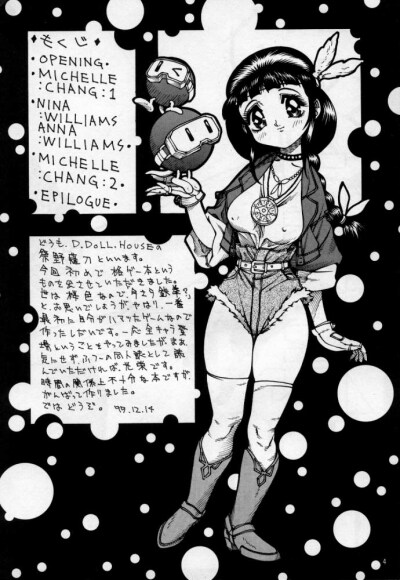 ♦もくじ♦
・OPENING・
・MICHELLE
:CHANG:1
・NINA
:WILLIAMS
ANNA
:WILLIAMS・
・MICHELLE
:CHANG:2・
・EPILOGUE・
どうも、D.DOLL.HOUSEの
といいます。
今回初めて格ゲー本という
ものを出させていただきました。
と、お思いでしょうが、やはり、一番
最初に自分がハマったゲームなので
作ったしだいです。一応全キャラ登
場ということをやってみましたが、まあ、
気にせず、ふつーの同人誌として読
んでいただければ、光栄です。
時間の関係上不十分な本ですが、
がんばって作りました。
ではどうぞ。 '97.12.14
4